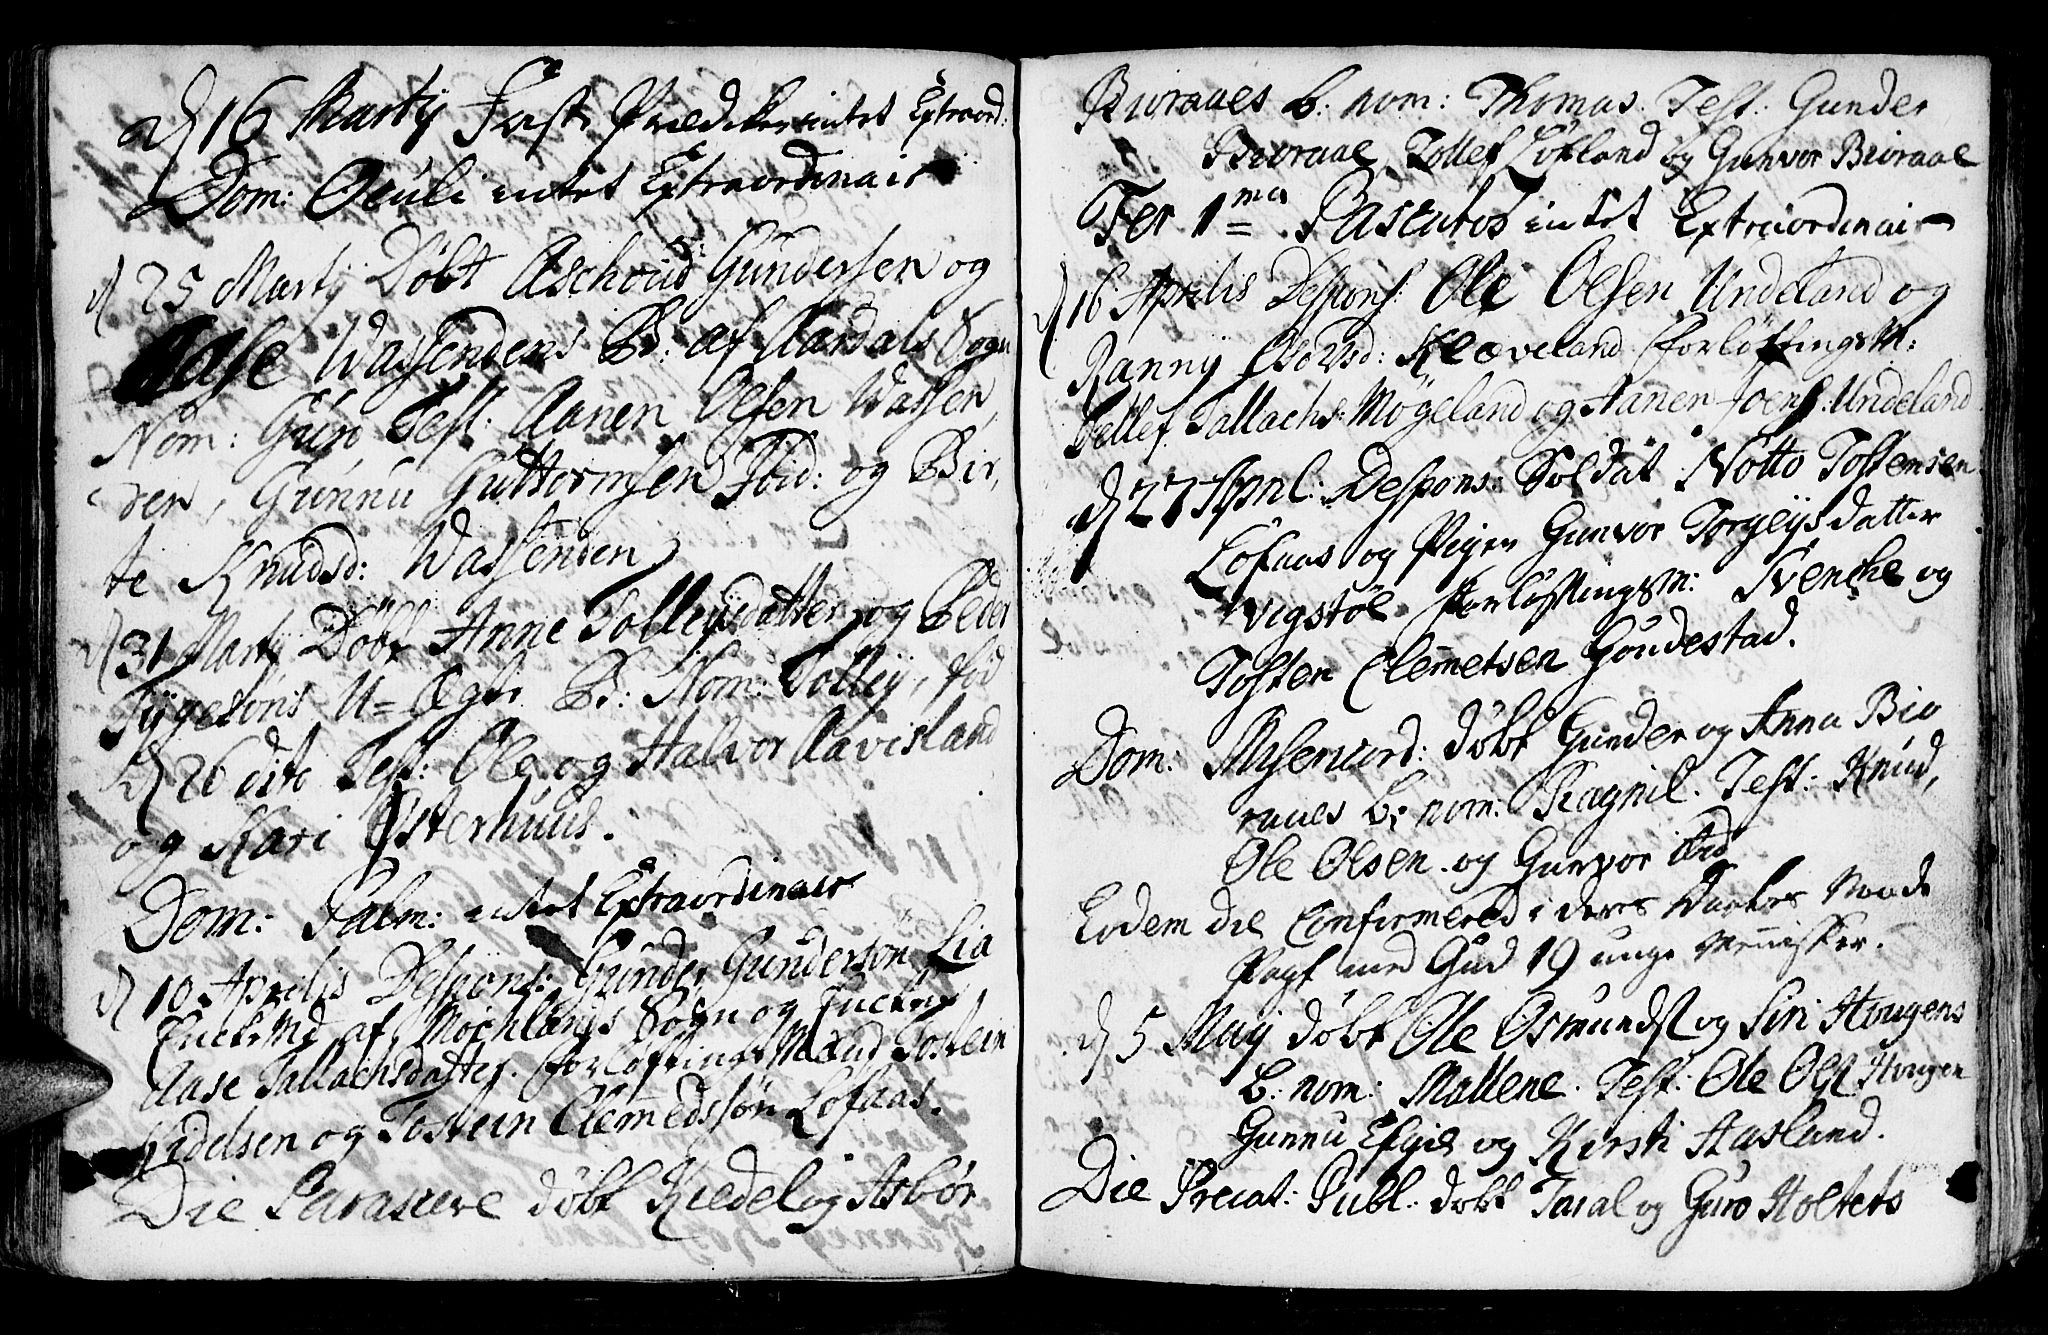 d 16 Martij Fast Prædiken intet Extraord:
Dom: Oculi intet Extraordinair
d 25 Martij Döbt Aschoud Gundersen og
Aase Wassendens B: af Aardals Sogn
Nom: Guro Test: Aanen Olsen Wassen,
den, Gunnu Guttormsen Ibid: og Bir,
te Knudsd: Wassenden
d 31 Martij Döbt Anne Tolleijsdatter og Peder
Tygesöns U=Ægte B: Nom: Tolleij, föd
d 26 dito Test: Ole og Halvor Aavisland
og Kari Østerhuus.
Dom: Palm: intet Extraordinair
d 10 Aprilis Despons: Gunder Gundersön Lia
Enckemd af Mochlands Sogn og Encken
Aase Tallachsdatter. Forlöftings Mænd Tostein
Kidelsen og Tostein Clemedssön Lofaas.
Die Parasceve döbt Kiedel og Asbör
Bioraaes B: nom: Thomas Test: Gunder
Bioraae, Tollef Löfland og Gunvor Bioraae
Fer 1ma Paschatos intet Extraordinair
d 16 Aprilis Despons: Ole Olsen Undeland og
Ranny Kleveland Forlöftingsm:
Tellef Tallachs: Mögeland og Aanen Joens: Undeland
d 27 April: Despons: Soldat Notto Tostensen
Lofaas og Pigen Gunvor Torgeijsdatter
Vigstöl Forlöftingsm: Svenche og
Tosten Clemetsen Goudestad.
Dom: Misericord: döbt Gunder og Anna Bio
raaes B: nom: Ragnil. Test: Knud,
Ole Olsen og Gunvor ibid
Eodem die Confirmered i deres Daabes Naade
Pagt med Gud 19 unge Mennisker.
d 5 Maij döbt Ole Osmunds: og Siri Hougens
B: nom: Mallene. Test: Ole Ols: Hougen
Gunnu Eschil og Kirsti Hasland.
Die Precat: Publ: döbt Taral og Guro Holtets